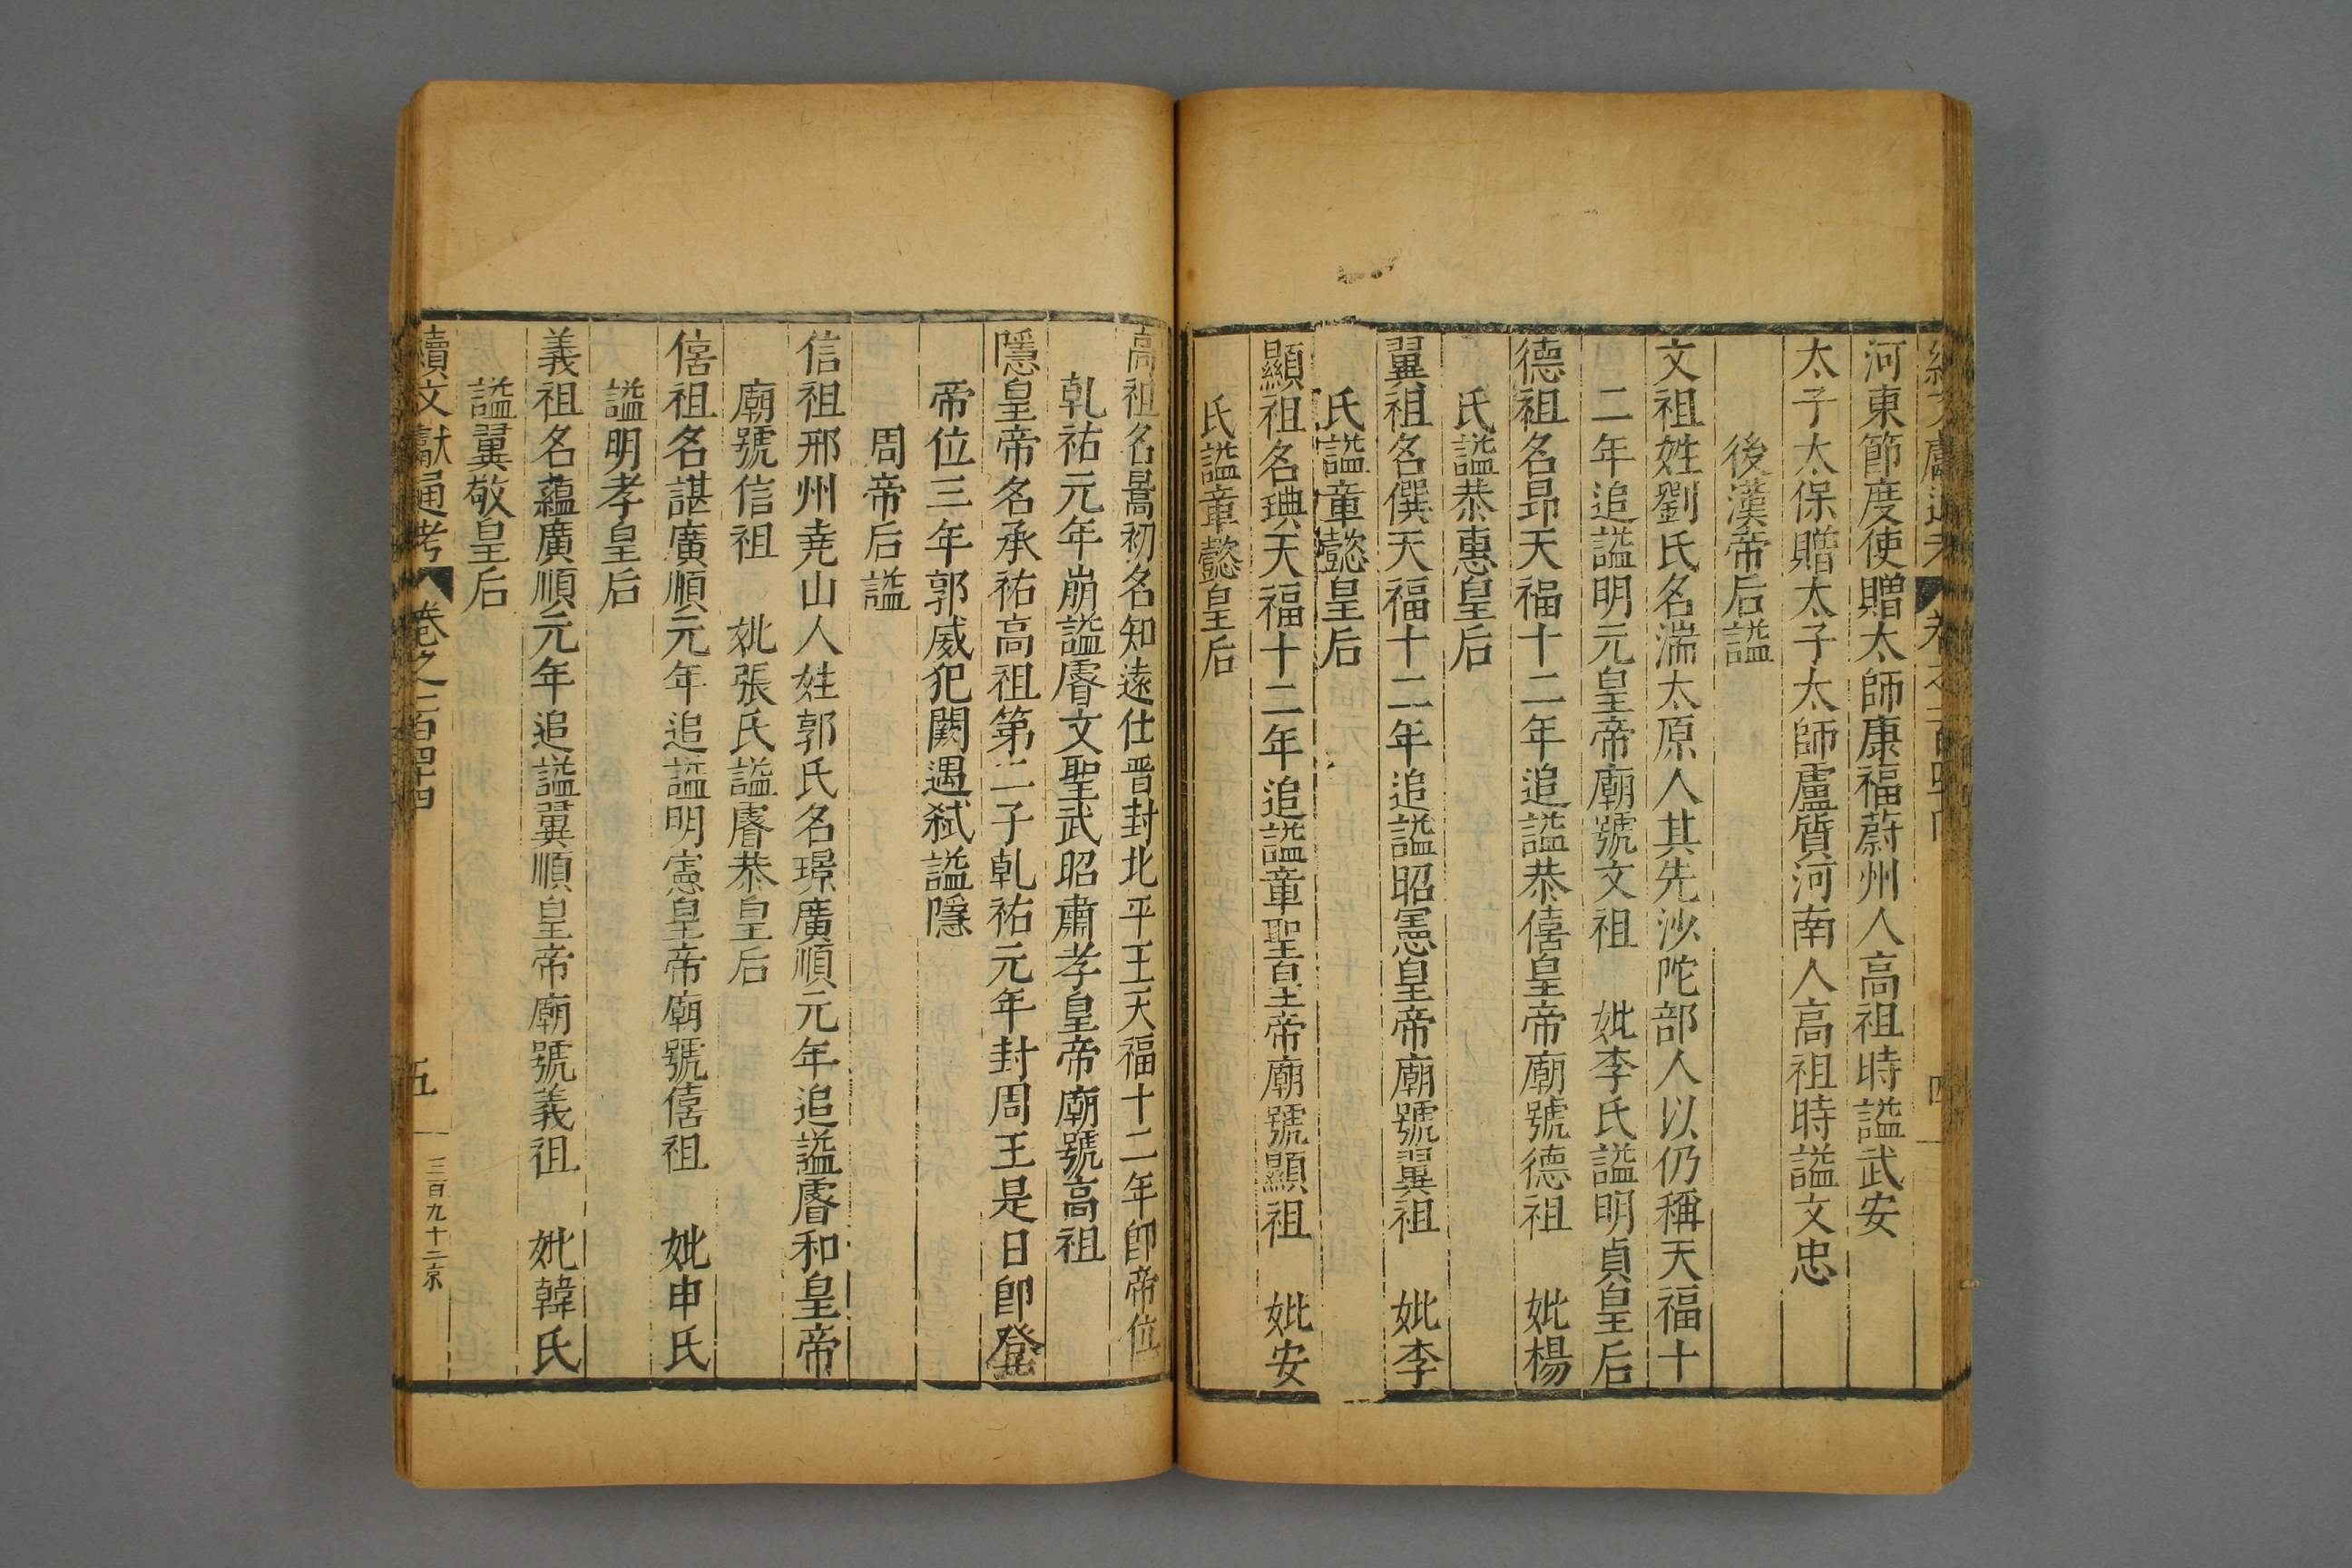 續文獻通考 卷之二百四十四 四
河東節度使贈太師康福蔚州人高祖時謚武安
太子太保贈太子太師盧質河南人高祖時謚文忠
後漢帝后謚
文祖姓劉氏名湍太原人其先沙陀部人以仍稱天福十
二年追謚明元皇帝廟號文祖 妣李氏謚明貞皇后
德祖名昻天福十二年追謚恭僖皇帝廟號德祖 妣楊
氏謚恭惠皇后
翼祖名僎天福十二年追謚昭憲皇帝廟號翼祖 妣李
氏謚章懿皇后
顯祖名琠天福十二年追謚章聖皇帝廟號顯祖 妣安
氏謚章懿皇后
高祖名暠初名知遠仕晋封北平王天福十二年卽帝位
乹祐元年崩謚睿文聖武昭肅孝皇帝廟號高祖
隱皇帝名承祐高祖第二子乹祐元年封周王是日卽登
帝位三年郭威犯闕遇弒謚隱
周帝后謚
信祖邢州尭山人姓郭氏名璟廣順元年追謚睿和皇帝
廟號信祖 妣張氏謚睿恭皇后
僖祖名諶廣順元年追謚明憲皇帝廟號僖祖 妣申氏
謚明孝皇后
義祖名蘊廣順元年追謚翼順皇帝廟號義祖 妣韓氏
謚翼敬皇后
續文獻通考 卷之二百四十四 五 三百九十二京